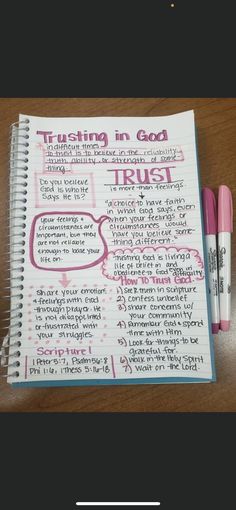 Trusting in God
in difficult times
to trust is to believe in the reliability,
truth, ability, or strength of some-
thing.
Do you believe
God is who He
Says He is?
TRUST
is more than feelings.
"a choice to have faith
in what God says, even
when your feelings or
circumstances would
have you believe some-
thing different."
your feelings &
circumstances are
important, but they
are not reliable
enough to base your
life on.
Trusting God is living a
life of belief in and
obedience to God even in
difficulty
Share your emotions
& feelings with God
through prayer. He
is not disappointed
or frustrated with
your struggles.
Scripture!
1 Peter 5:7, Psalm 56:8
Phi 1:6, 1 Thess 5:16-18
How To Trust God
1) Seek truth in scripture
2) Confess unbelief
3) Share concerns w/
your community
4) Remember God & spend
time with Him
5) Look for things to be
grateful for.
6) Walk in the Holy Spirit
7) Wait on the Lord.